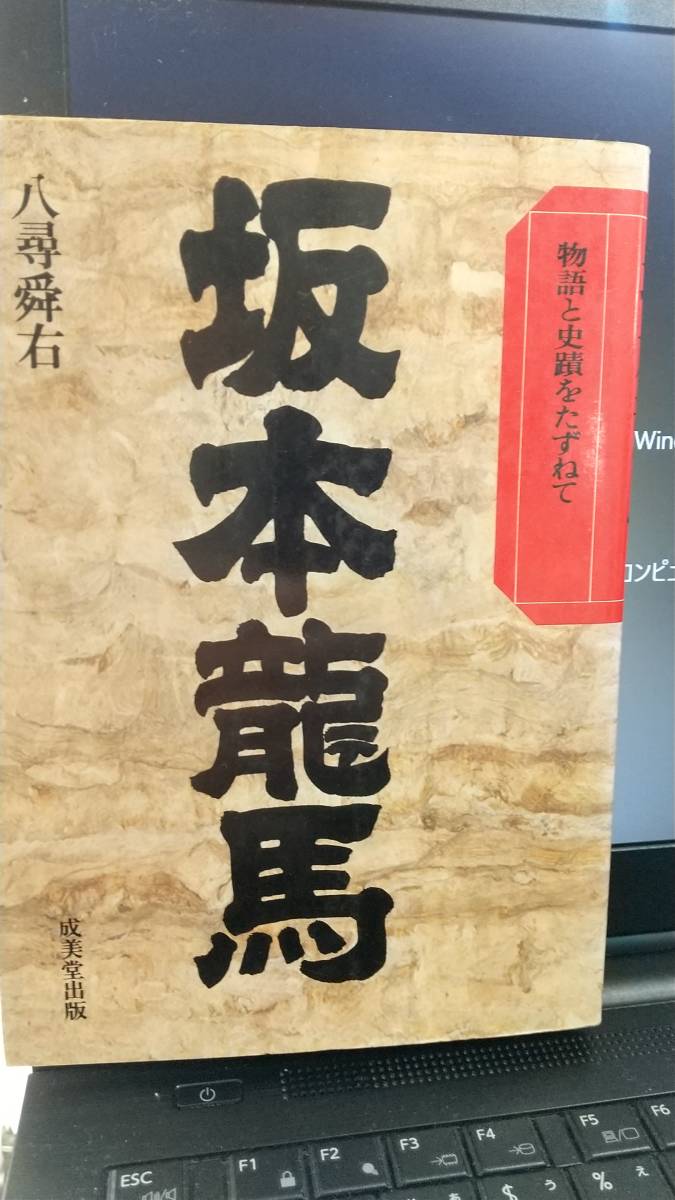 物語と史蹟をたずねて
坂本龍馬
八尋舜右
成美堂出版
Win
コンピュ
ESC
F1
F2
F3
F4
F5
F6
ぁ
う
%
ぇ